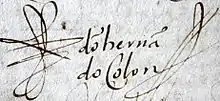 do herna
do Colon